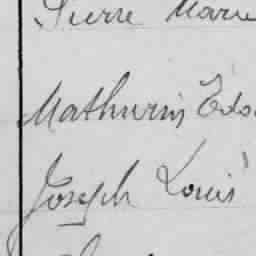 Pierre Marie
Mathurin Edo
Joseph Louis